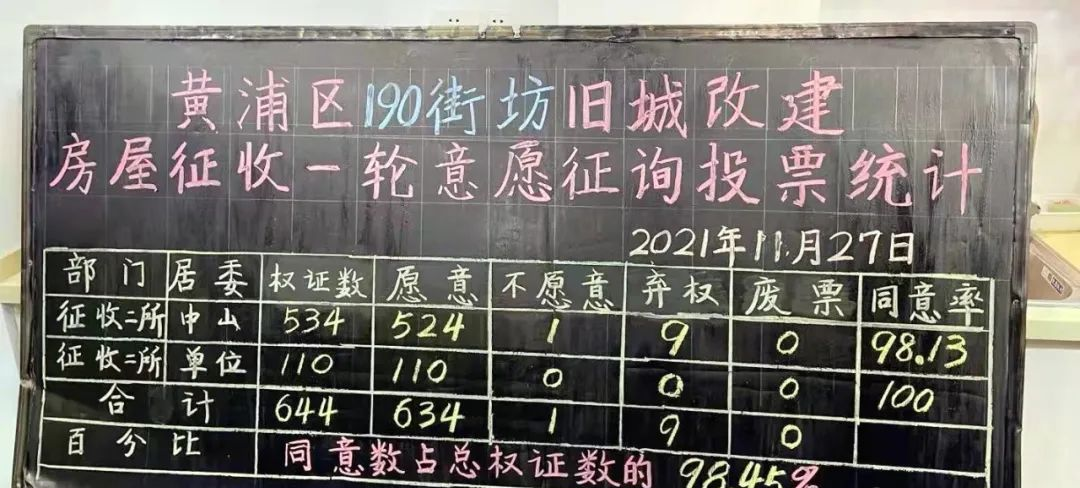 黄浦区190街坊旧城改建
房屋征收一轮意愿征询投票统计
2021年11月27日
部门 居委 权证数 愿意 不愿意 弃权 废票 同意率
征收二所 中山 534 524 1 9 0 98.13
征收二所 单位 110 110 0 0 0 100
合计 644 634 1 9 0
百分比 同意数占总权证数的 98.45%